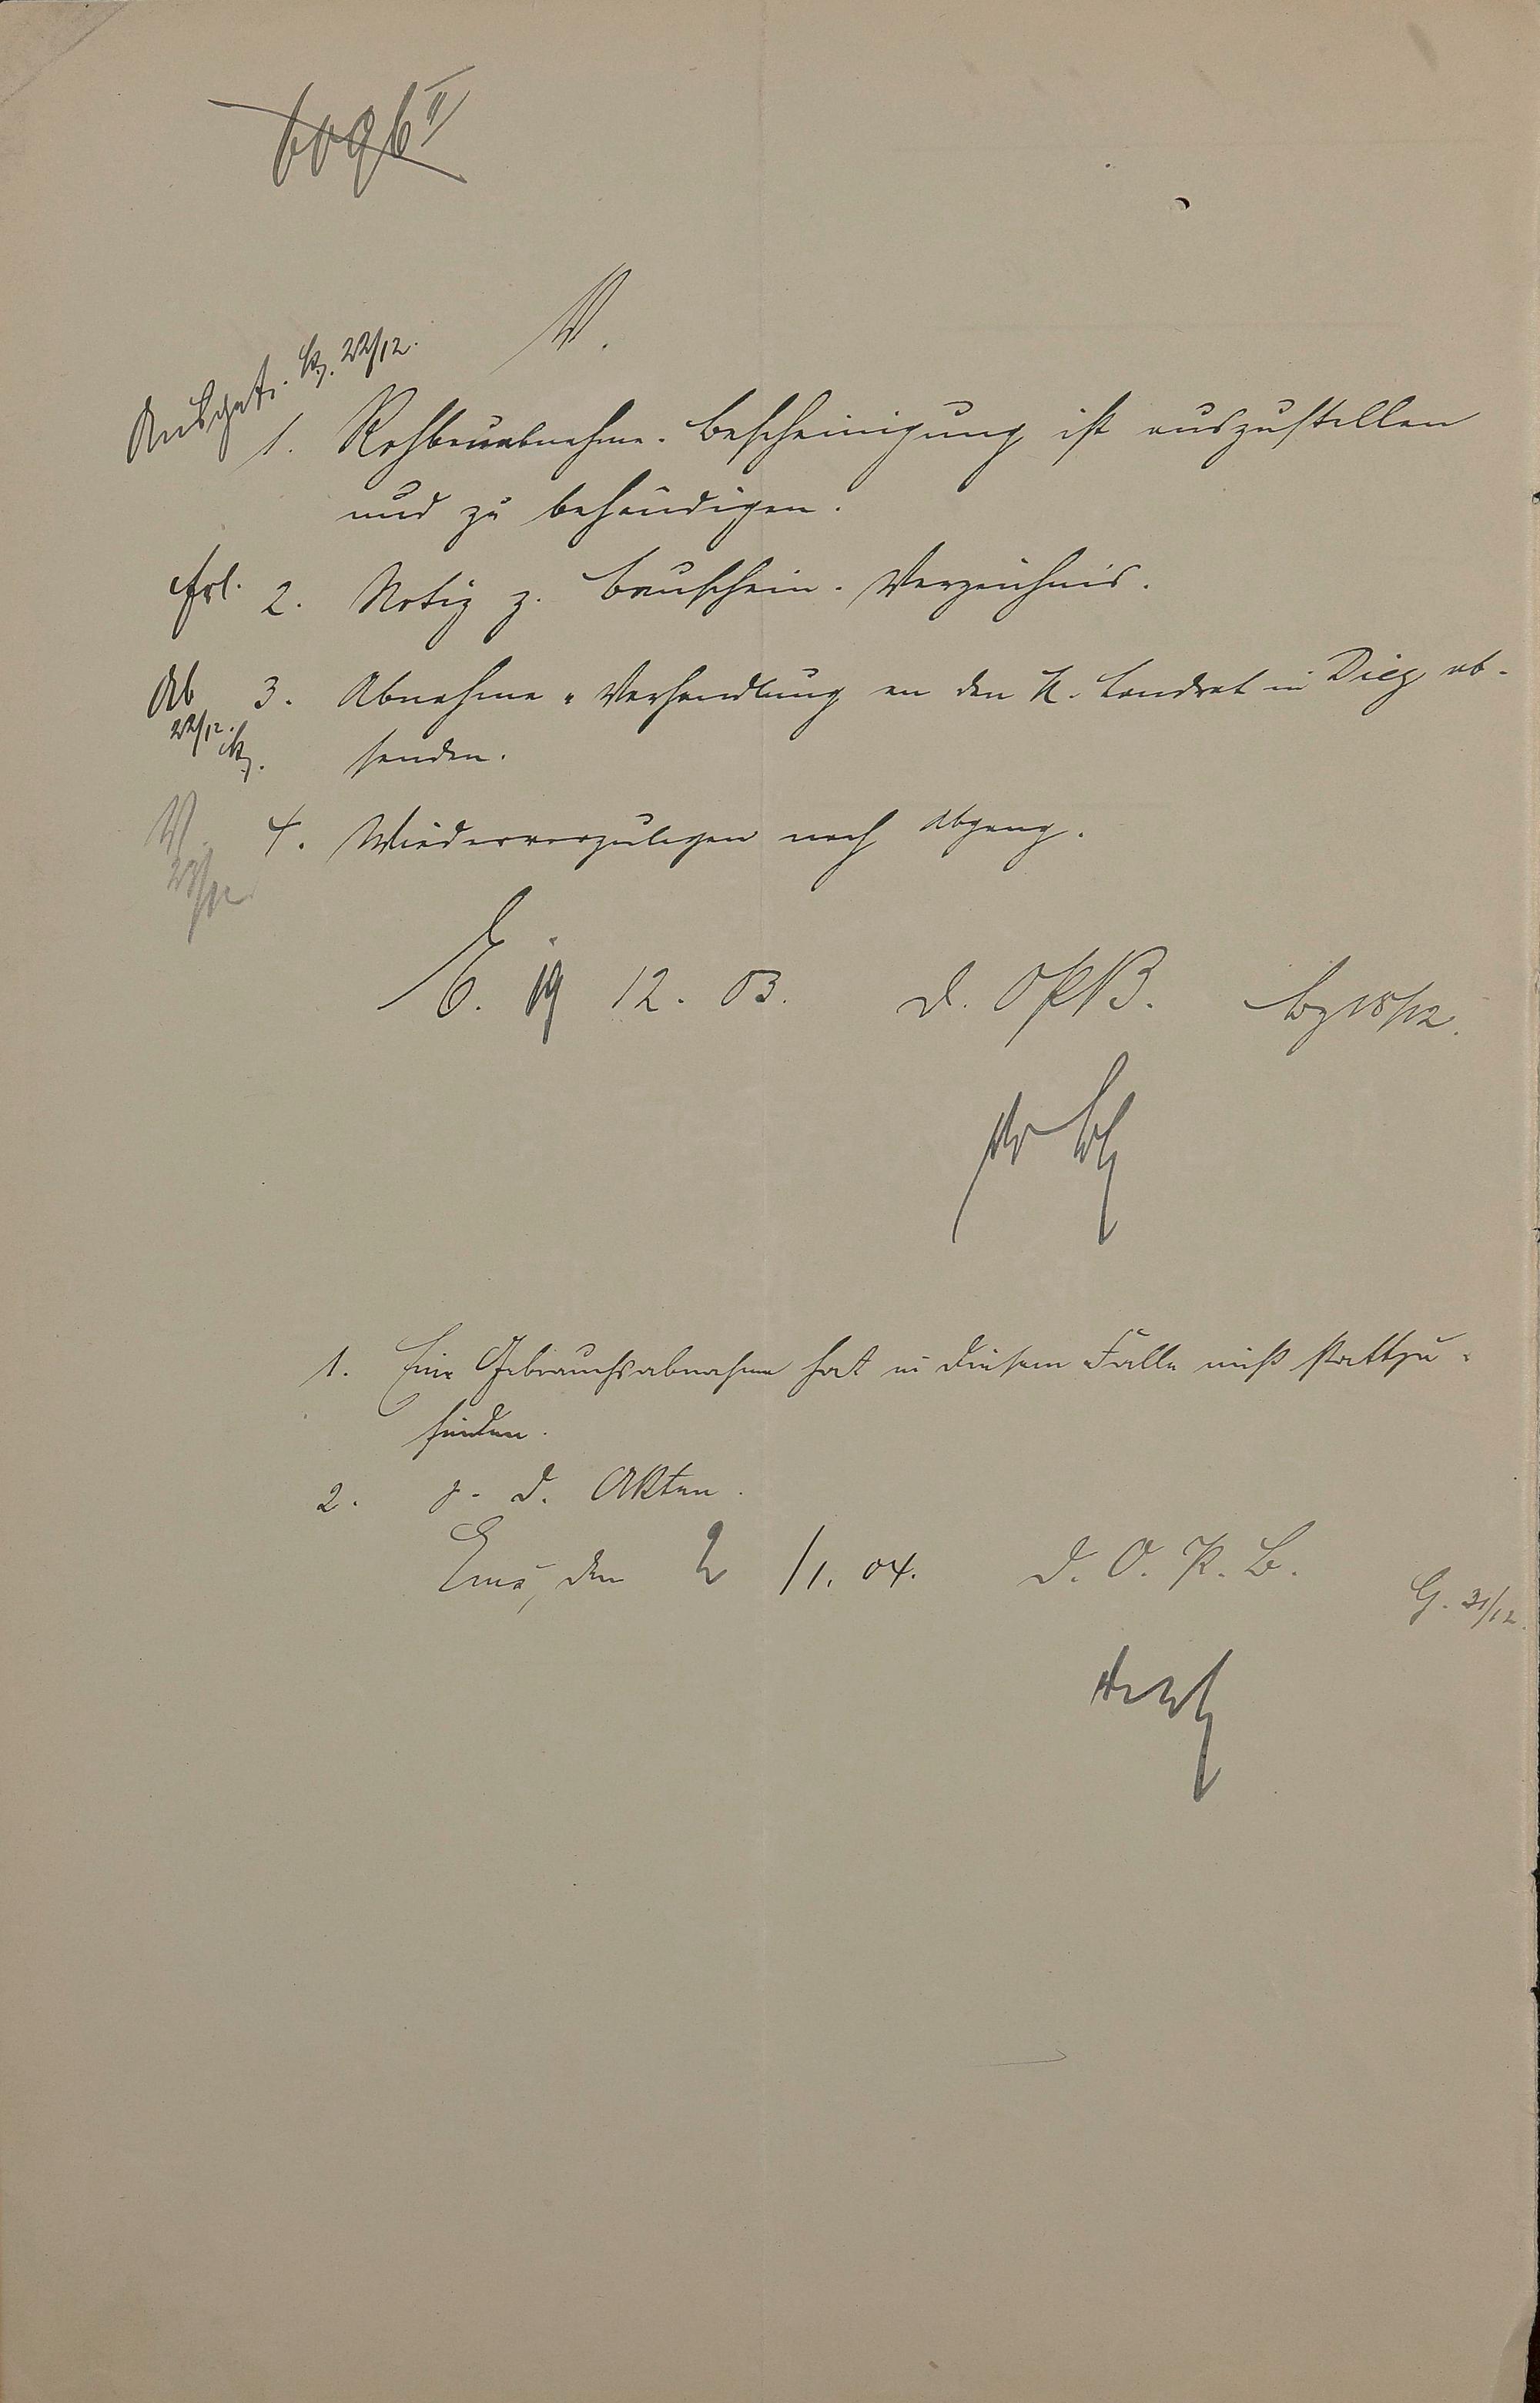 6096 II
V.
Ausgef. 22/12.
1. Rohbauabnahme-Bescheinigung ist auszustellen
und zu behändigen.
Erl. 2. Notiz z. Bauschein-Verzeichnis.
Ab 3. Abnahme-Verhandlung an den K. Landrat in Diez ab-
22/12.
senden.
V. 4. Wiedervorzulegen nach Abgang.
23/12
E. 19 12. 03. D. OPB. 18/12.
1. Eine Gebrauchsabnahme hat in diesem Falle nicht stattzu-
finden.
2. z. d. Akten.
Ems, den 2/1. 04. D. O. P. B.
G. 31/12.